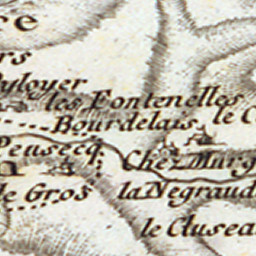 re
rs
yloyer
les Fontenelles
Bourdelais
le C
Peusecq
Chez Murg
le Gros
la Negraud
le Clusea